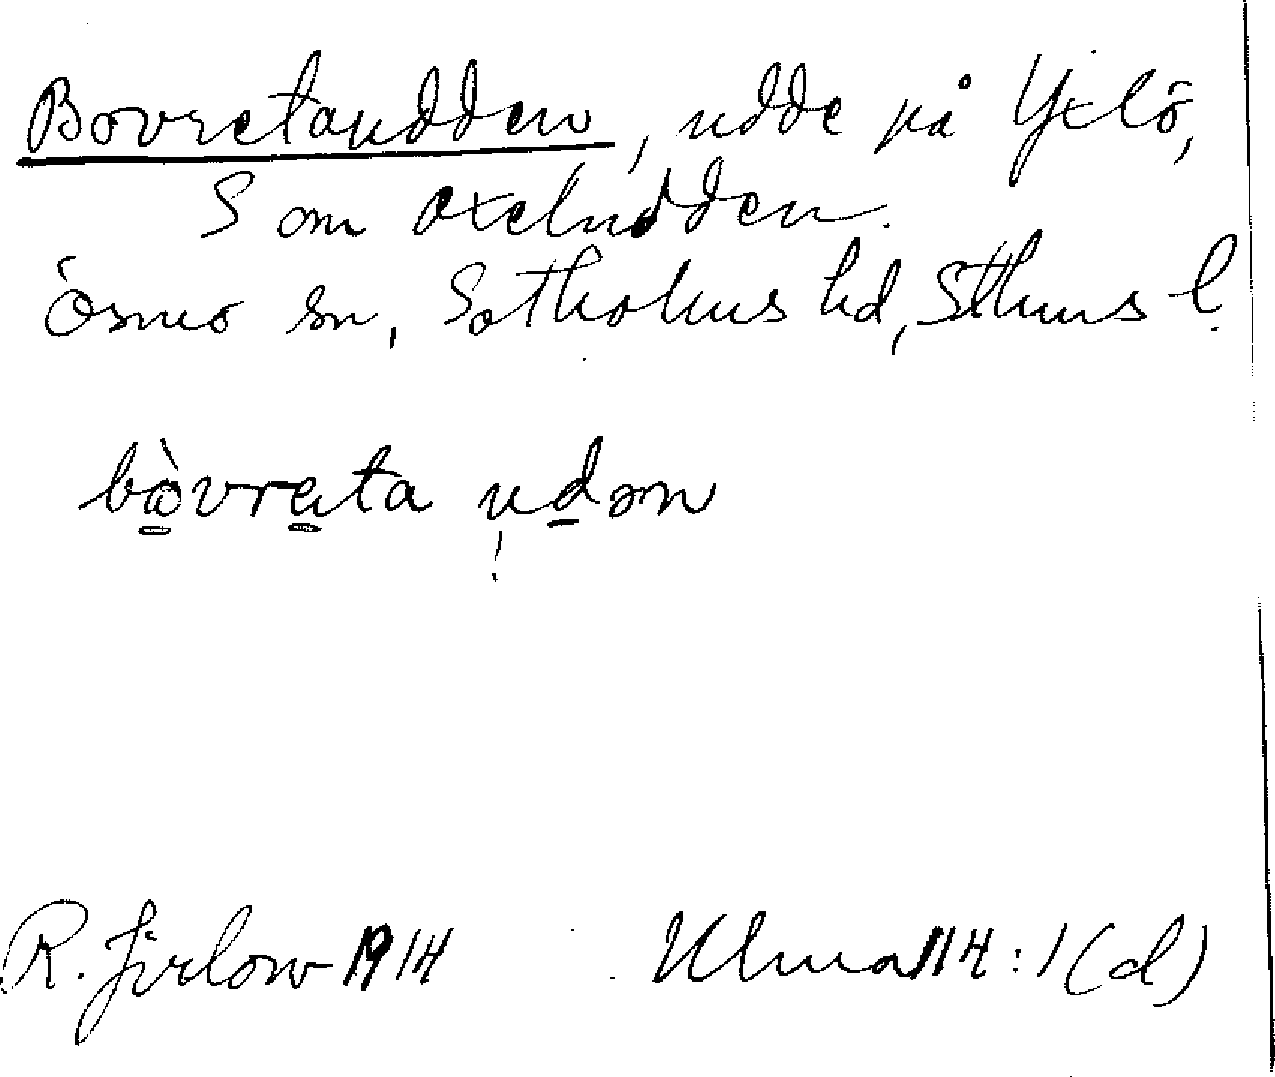 Bovretaudden, udde på Yxlö,
S om Oxeludden.
Ösmo sn, Sotholms hd, Sthms l.
bòvreta udən
R. Jirlow 1914 Ulma 114:1(d)